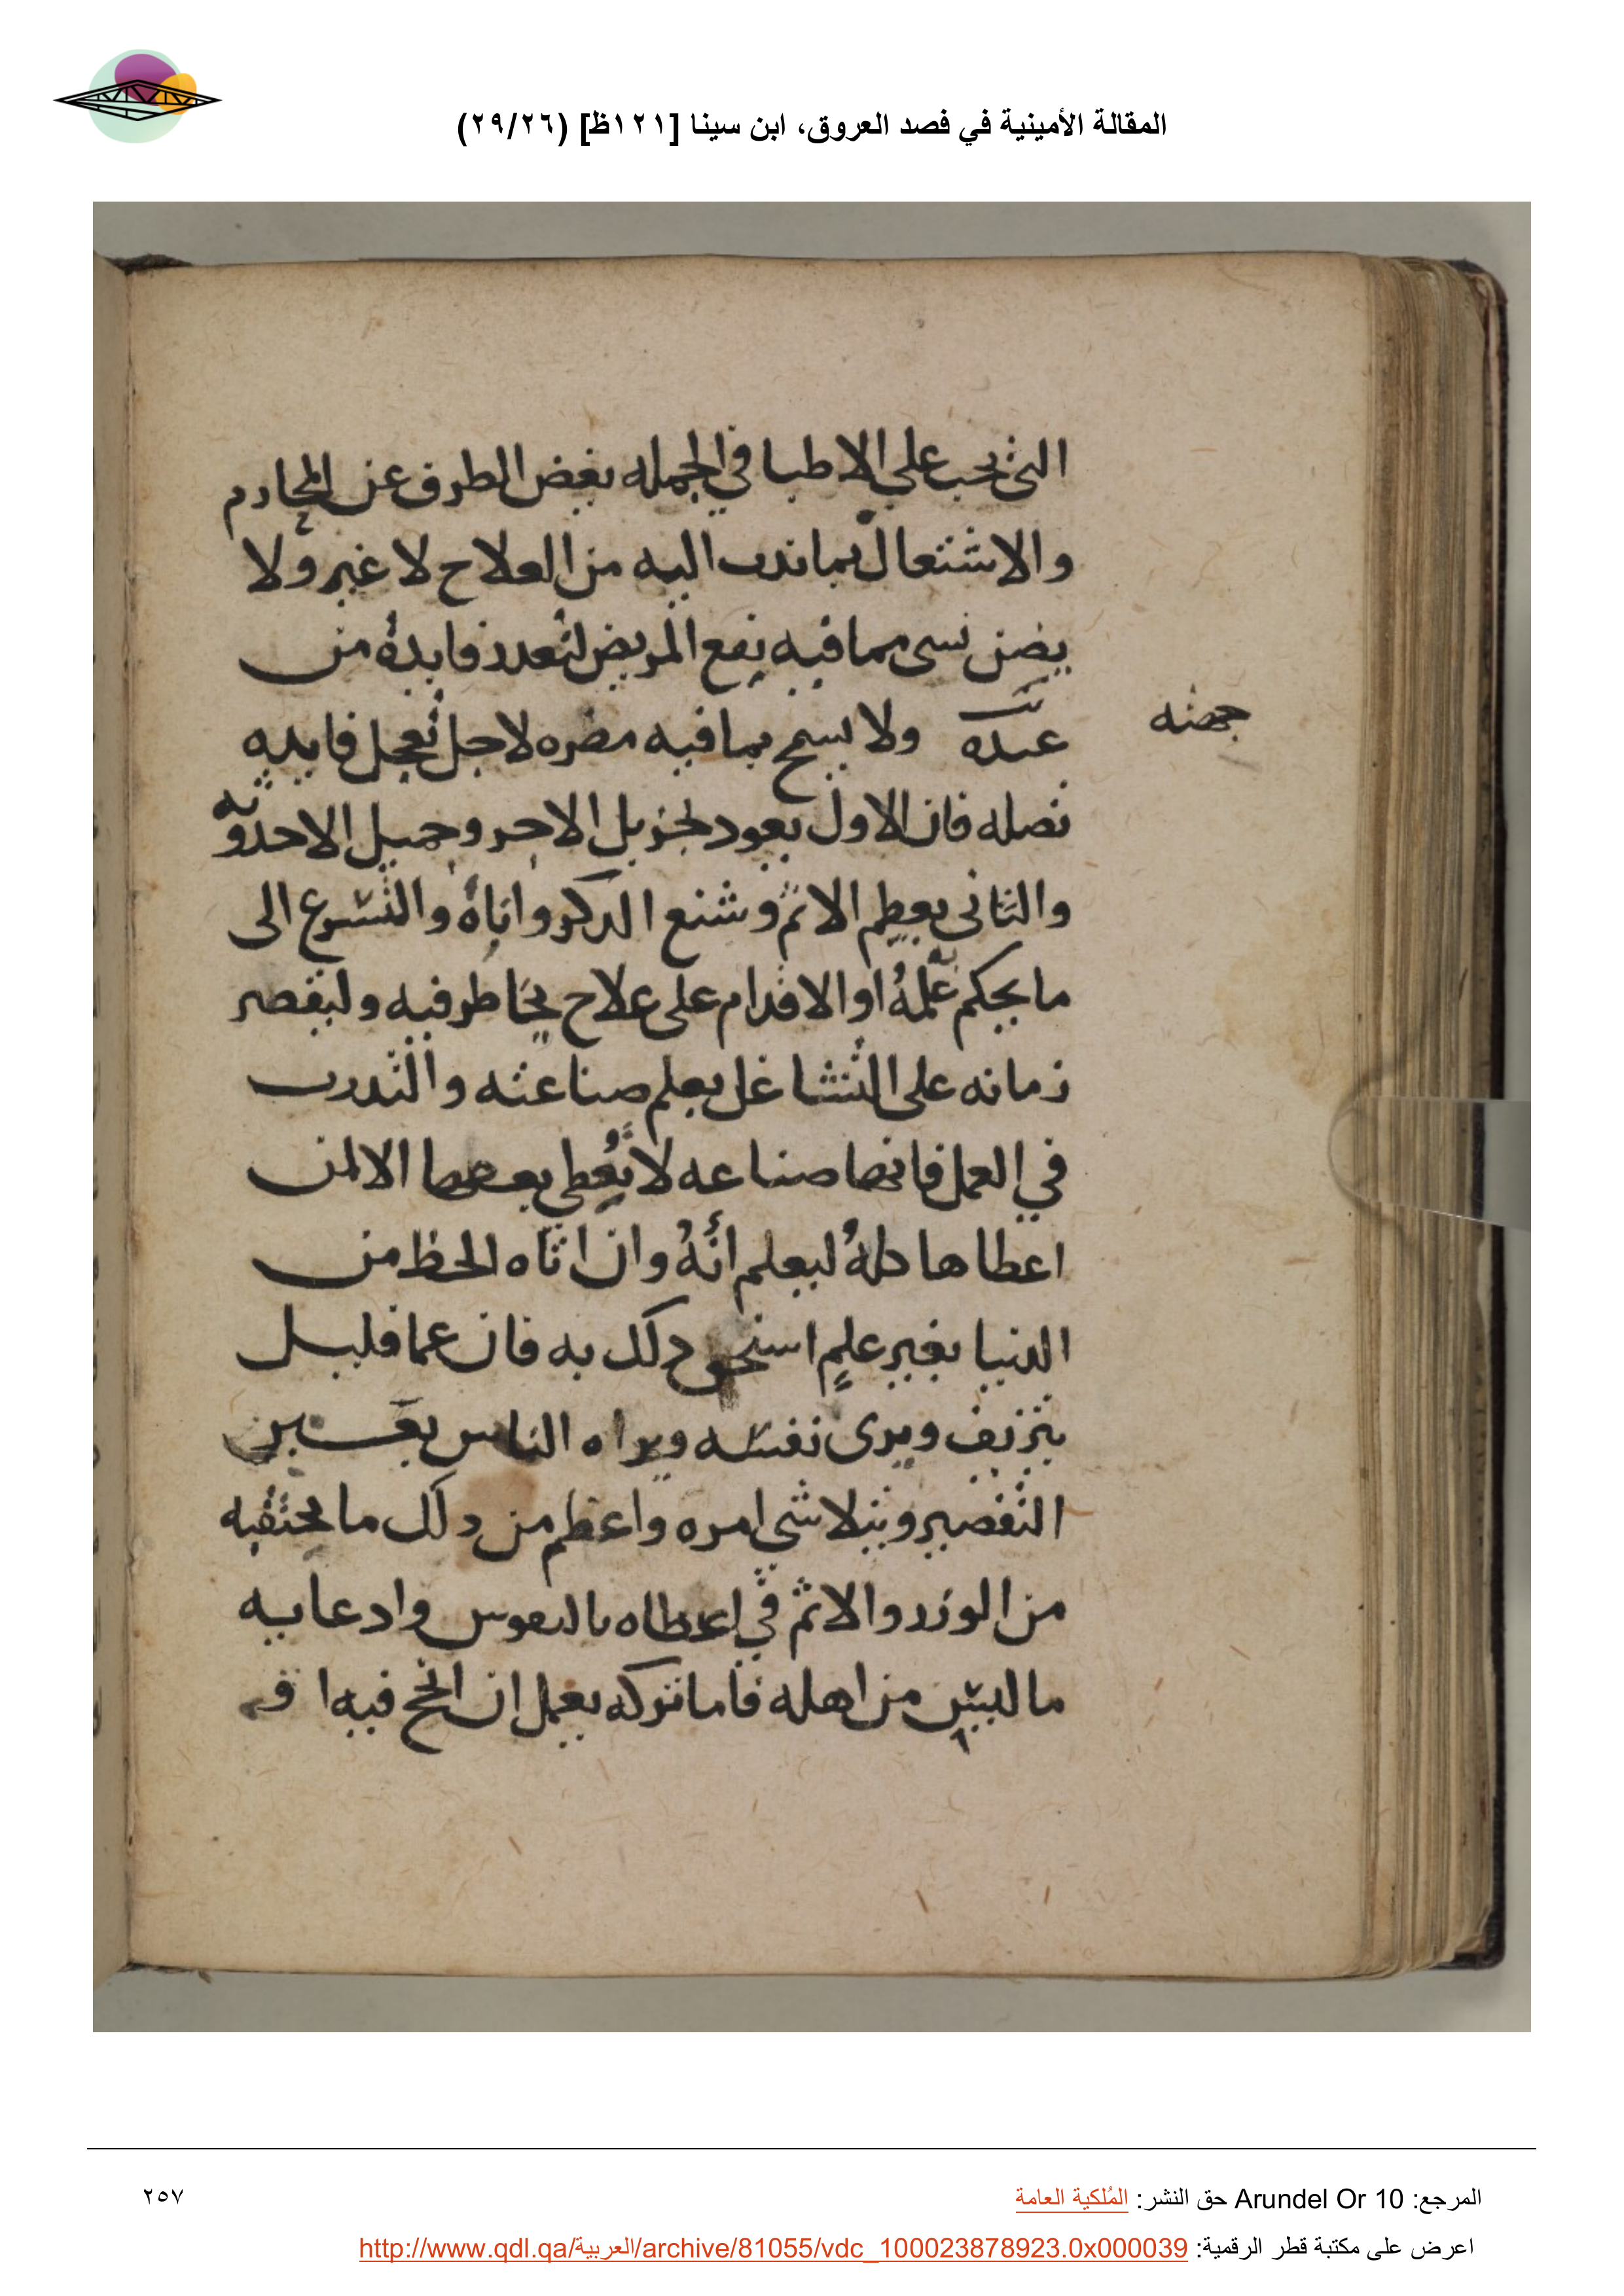 المقالة الأمينية في فصد العروق، ابن سينا [١٢١ظ] (٢٩/٢٦)
التي يجب على الاطبا في الجمله بغض الطرف عن المحارم
والاشتغال بما ندب اليه من العلاج لا غير ولا
يضن بشى مما فيه نفع المريض لتعدد فايدة من
عنده ولا يسمح بما فيه مضره لاجل تعجل فايده
جهته
تصله فان الاول يعود لجزيل الاجر وجميل الاحدوثه
والثانى بعظيم الاثم وشنع الذكر واياه والتسرع الى
ما يحكم علمه او الاقدام على علاج يخاطر فيه وليقصر
زمانه على التشاغل بعلم صناعته والتدرب
في العمل فانها صناعه لا تعطي بعضها الا لمن
اعطاها كله ليعلم انه وان اتاه الحظ من
الدنيا بغير علم استحق ذلك به فان عما قليل
يتزيف ويرى نفسه ويراه الناس بعين
التقصير ويتلاشي امره واعظم من ذلك ما يحتقبه
من الوزر والاثم في اعطاه بالنفوس وادعايه
ما ليس من اهله فاما تركه يعمل ان انجح فيه
المرجع: Arundel Or 10 حق النشر: المُلكية العامة
٢٥٧
اعرض على مكتبة قطر الرقمية: http://www.qdl.qa/العربية/archive/81055/vdc_100023878923.0x000039